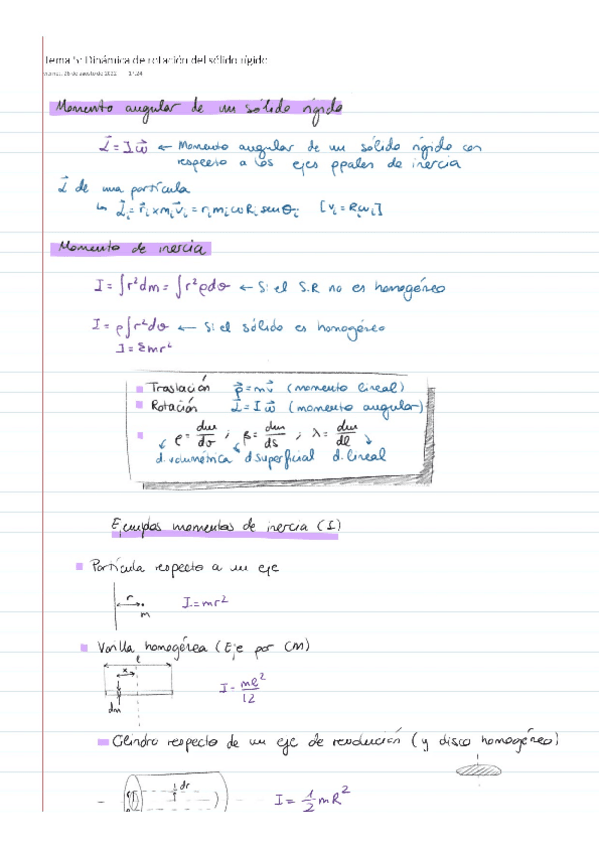 Tema 5: Dinámica de rotación del sólido rígido
viernes, 28 de                de 2022    17:24
Momento angular de un sólido rígido
L⃗ = I ω⃗ ← Momento angular de un sólido rígido con
respecto a los ejes ppales de inercia
L⃗ de una partícula
↳ L⃗ᵢ = r⃗ᵢ × mᵢ v⃗ᵢ = rᵢ mᵢ ω Rᵢ sen θᵢ [vᵢ = Rᵢωᵢ]
Momento de inercia
I = ∫r²dm = ∫r²ρdv ← Si el S.R no es homogéneo
I = ρ∫r²dv ← Si el sólido es homogéneo
I = Σmr²
Traslación p⃗ = mv⃗ (momento lineal)
Rotación L⃗ = I ω⃗ (momento angular)
ρ = dm/dv ; β = dm/ds ; λ = dm/dl
d. volumétrica d superficial d. lineal
Ejemplos momentos de inercia (I)
Partícula respecto a un eje
r
m
I = mr²
Varilla homogénea (Eje por CM)
l
x
dm
I = ml²/12
Cilindro respecto de un eje de revolución (y disco homogéneo)
dr
I = 1/2 mR²